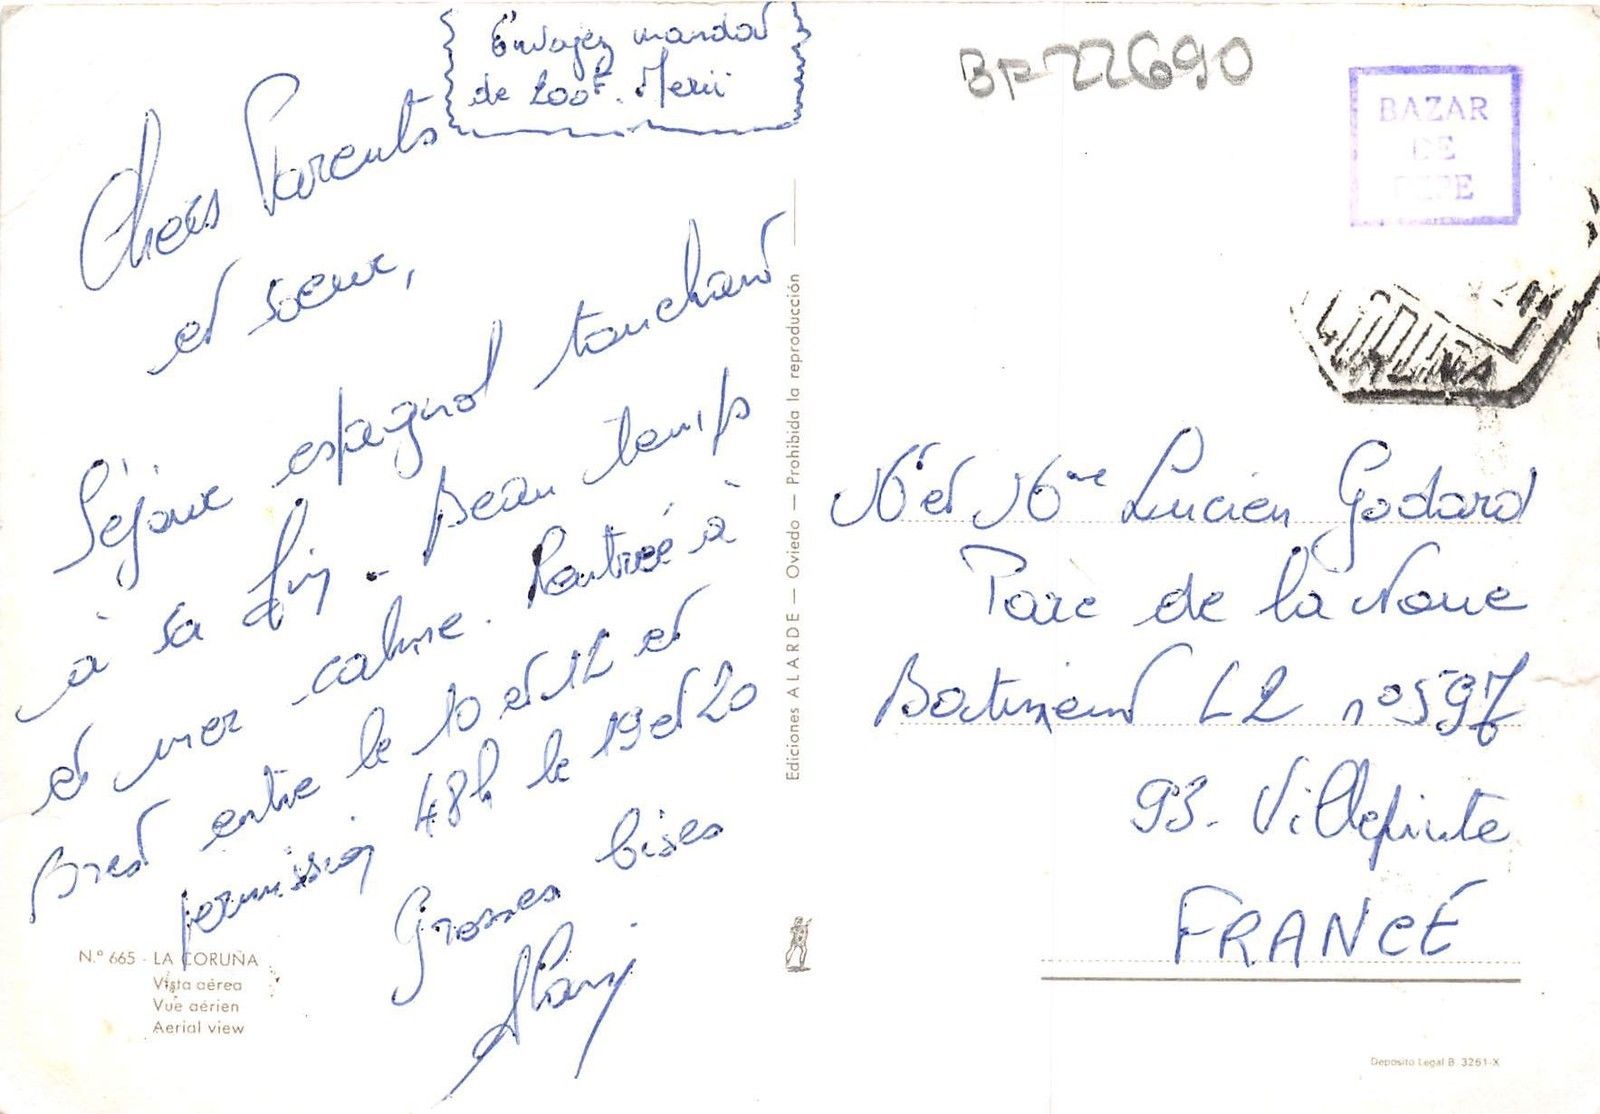 Envoyez mandat
de 200F. Merci
Chers Parents
et soeur,
Séjour espagnol touchant
à sa fin. Beau temps
et mer calme. Rentrée à
Brest entre le 10 et 12 et
permission 48h le 19 et 20
Grosses bises
Alain
N.º 665 - LA CORUÑA
Vista aérea
Vue aérien
Aerial view
Ediciones ALARDE — Oviedo — Prohibida la reproducción
BF 22690
BAZAR
DE
PEPE
CORUÑA
Mr et Mme Lucien Godard
Parc de la Noue
Batiment L2 n° 597
93. Villepinte
FRANCE
Deposito Legal B. 3261-X